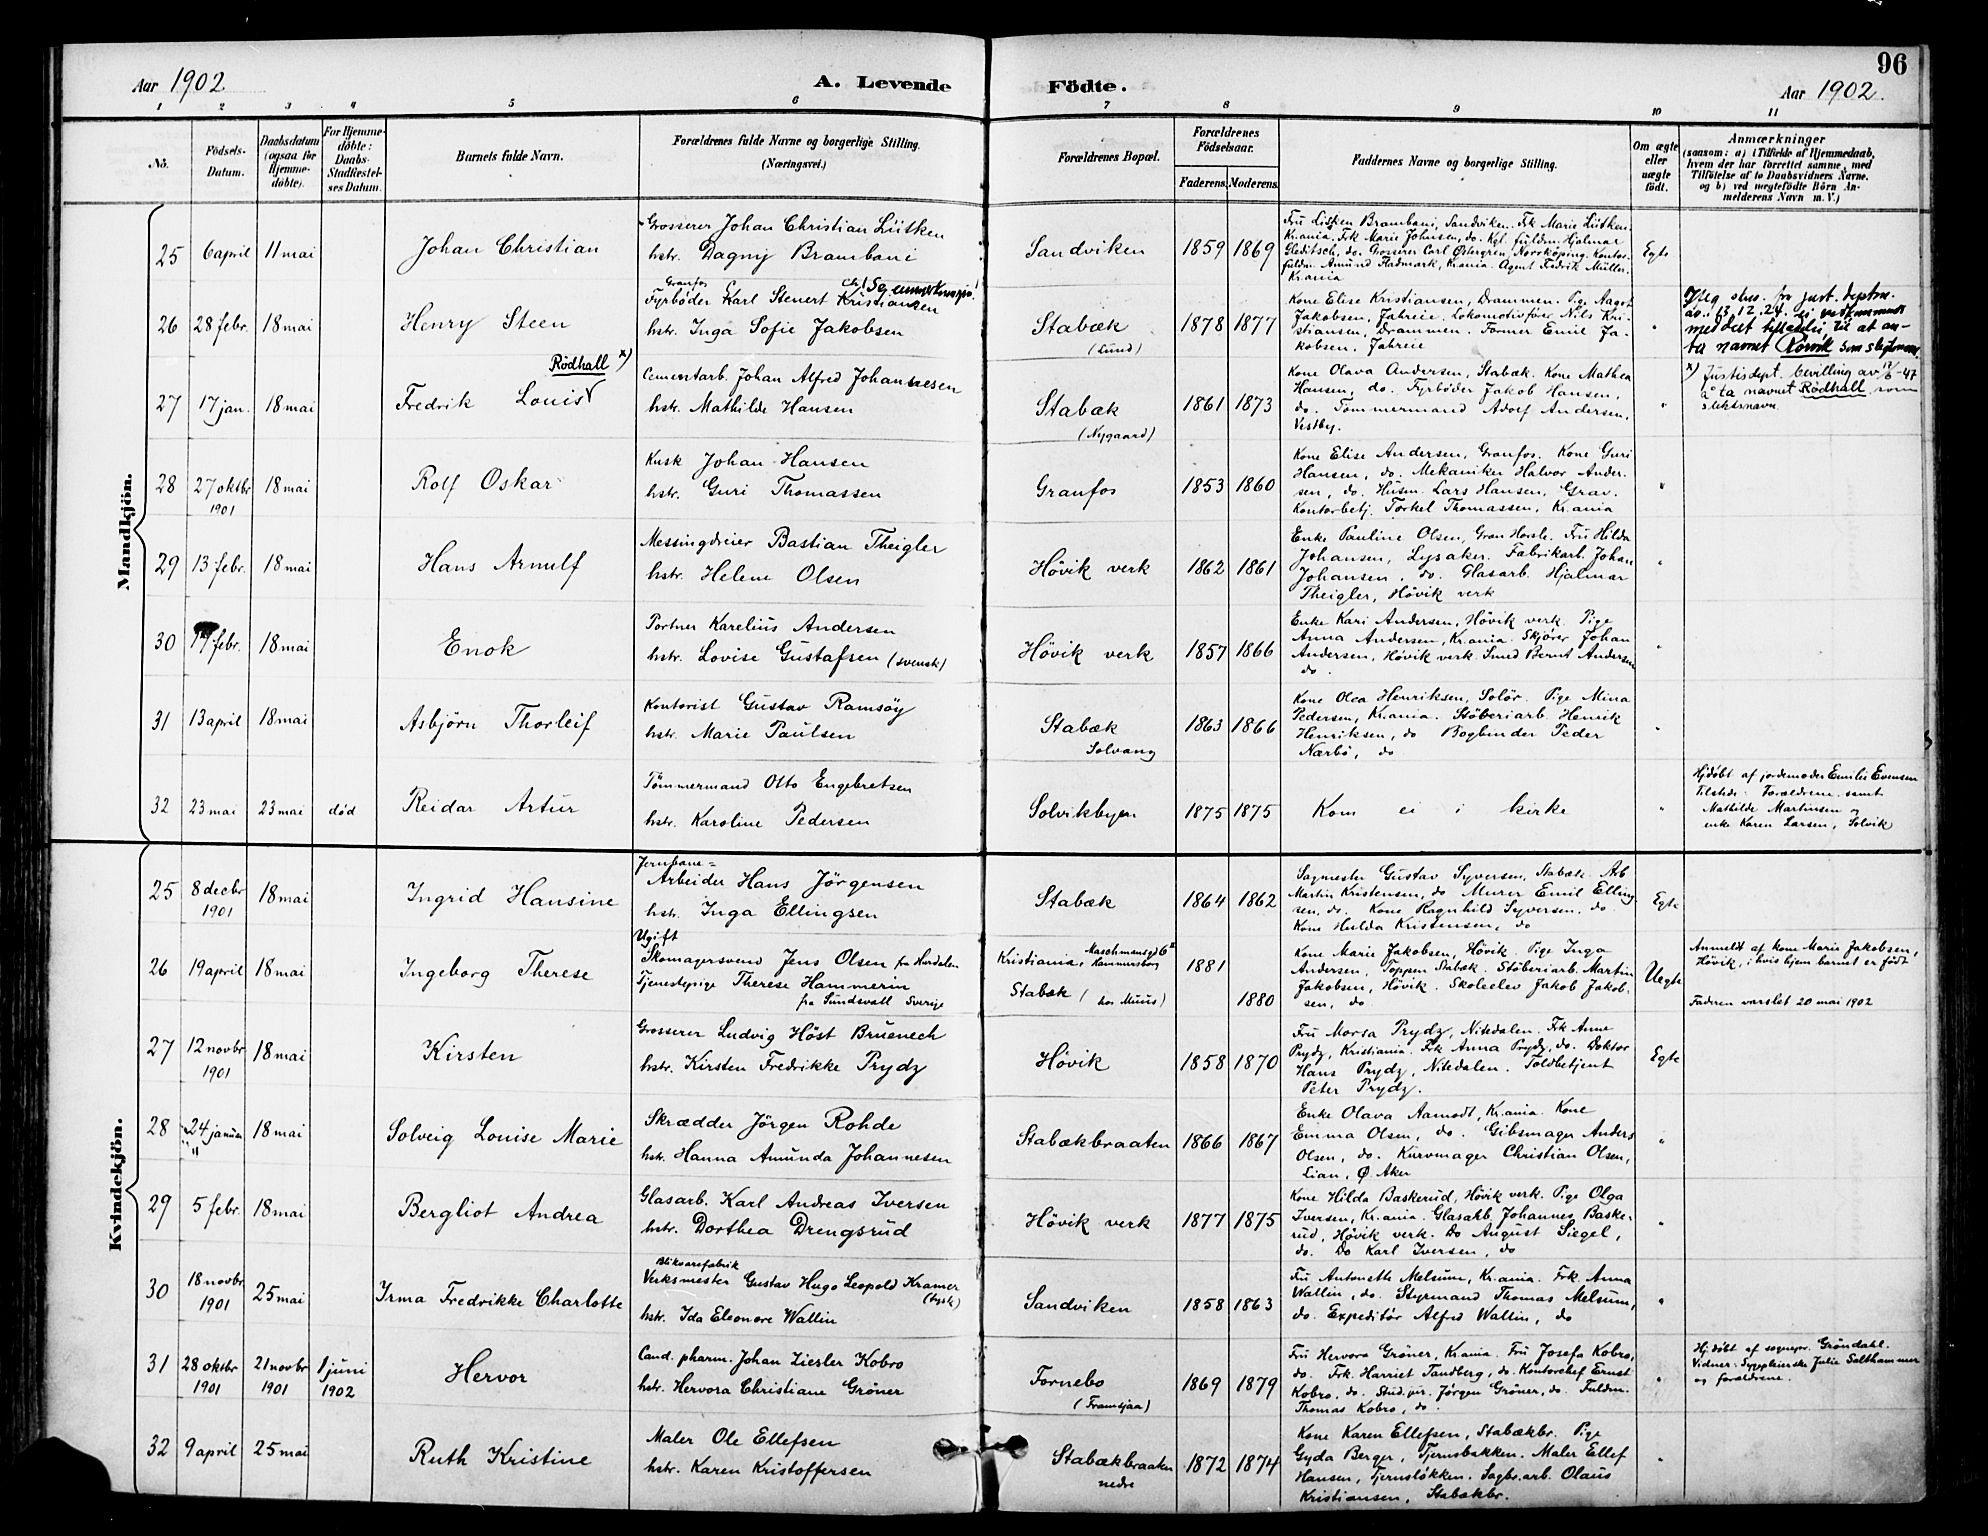 96
Aar 1902
A. Levende
Födte.
Aar 1902.
1 2 3 4 5 6 7 8 9 10 11
No.
Födsels-
Datum.
Daabsdatum
(ogsaa for
Hjemme-
döbte).
For Hjemme-
döbte:
Daabs-
Stadfæstel-
ses Datum.
Barnets fulde Navn.
Forældrenes fulde Navne og borgerlige Stilling.
(Næringsvei.)
Forældrenes Bopæl.
Forældrenes
Födselsaar.
Faderens. Moderens.
Faddernes Navne og borgerlige Stilling.
Om ægte
eller
uægte
födt.
Anmærkninger
(saasom: a) i Tilfælde af Hjemmedaab,
hvem der har forrettet samme, med
Tilföielse af to Daabsvidners Navne.
og b) ved uægtefödte Börn An-
melderens Navn m. V.)
Mandkjön.
25 6 april 11 mai
Johan Christian
Grosserer Johan Christian Lütken
hstr. Dagny Brambani
Sandviken
1859 1869
Fru Lisken Brambani, Sandviken. Frk Marie Lütken
Kr.ania. Frk Marie Johnsen, do. Kgl. fuldm. Hjalmar
Gleditsch, do. Grosserer Carl Østergren, Norrköping. Kontor-
fuldm. Amund Fladmark, Kr.ania. Agent Fredrik Müller,
Kr.ania
Egte
26 28 febr. 18 mai
Henry Steen
Granfos
Fyrbøder Karl Stenert Kristiansen
hstr. Inga Sofie Jakobsen
Stabæk
(Lund)
1878 1877
Kone Elise Kristiansen, Drammen. Pige Aagot
Jakobsen, Fabreie. Lokomotivfører Nils Kri-
stiansen, Drammen. Former Emil Ja-
kobsen, Fabreie
"
Iflg skr. fra just. deptm.
av 13.12.24 er vedkommende
meddelt tilladelse til at an-
ta navnet Rørvik som slegtsnavn.
27 17 jan. 18 mai
Rödhall x)
Fredrik Louis
Cementarb. Johan Alfred Johannesen
hstr. Mathilde Hansen
Stabæk
(Nygaard)
1861 1873
Kone Olava Andersen, Stabæk. Kone Mathea
Hansen, do. Fyrbøder Jakob Hansen,
do. Tømmermand Adolf Andersen,
Vestby.
"
x) Justisdept. bevilling av 12/6-47
å ta navnet Rödhall som
slektsnavn.
28 27 oktbr 18 mai
1901
Rolf Oskar
Kusk Johan Hansen
hstr. Guri Thomassen
Granfos
1853 1860
Kone Elise Andersen, Granfos. Kone Guri
Hansen, do. Mekaniker Halvor Ander-
sen, do. Husm. Lars Hansen, Grav.
Kontorbetj. Torkel Thomassen, Kr.ania
"
29 13 febr. 18 mai
Hans Arnulf
Messingdreier Bastian Theigler
hstr. Helene Olsen
Høvik verk
1862 1861
Enke Pauline Olsen, Gran Horsle. Fru Hilda
Johansen, Lysaker. Fabrikarb. Johan
Johansen, do. Glasarb. Hjalmar
Theigler, Høvik verk
"
30 17 febr. 18 mai
Enok
Portner Karelius Andersen
hstr. Lovise Gustafsen (svensk)
Høvik verk
1857 1866
Enke Kari Andersen, Høvik verk. Pige
Anna Andersen, Kr.ania. Skjører Johan
Andersen, Høvik verk. Smed Bernt Andersen
do.
"
31 13 april 18 mai
Asbjörn Thorleif
Kontorist Gustav Ramsøy
hstr. Marie Paulsen
Stabæk
Solvang
1863 1866
Kone Olea Henriksen, Solör. Pige Mina
Pedersen, Kr.ania. Støberiarb. Henrik
Henriksen, do Bogbinder Peder
Nærbø, do
"
32 23 mai 23 mai død
Reidar Artur
Tömmermand Otto Engebretsen
hstr. Karoline Pedersen
Solvikbyen
1875 1875
Kom ei i kirke
"
Hjdøbt af jordemoder Emilie Evensen
Tilstede: Forældrene samt
Mathilde Martinsen og
enke Karen Larsen, Solvik
Kvindekjön.
25 8 decbr 18 mai
1901
Ingrid Hansine
Jernbane-
Arbeider Hans Jörgensen
hstr. Inga Ellingsen
Stabæk
1864 1862
Sagmester Gustav Syversen, Stabæk. Arb
Martin Kristensen, do Murer Emil Elling
sen, do. Kone Ragnhild Syversen, do.
Kone Hulda Kristensen, do
Egte
26 19 april 18 mai
Ingeborg Therese
Ugift
Skomagersvend Jens Olsen fra Hurdalen
Tjenestepige Therese Hammerin
fra Sundsvall Sverige
Kristiania,
Stabæk (hos Muus)
1881
1880
Kone Marie Jakobsen, Høvik. Pige Inga
Andersen, Toppen Stabæk. Støberiarb. Martin
Jakobsen, Høvik. Skoleelev Jakob Jakob-
sen, do
Uegte
Anmeldt af kone Marie Jakobsen,
Høvik, i hvis hjem barnet er født
Faderen varslet 20 mai 1902
27 12 novbr 18 mai
1901
Kirsten
Grosserer Ludvig Höst Bruenech
hstr. Kirsten Fredrikke Prydz
Høvik
1858 1870
Fru Morsa Prydz, Nitedalen. Frk Anne
Prydz, Kristiania. Frk Anna Prydz, do. Doktor
Hans Prydz, Nitedalen. Toldbetjent
Peter Prydz.
Egte
28 24 januar 18 mai
"
Solveig Louise Marie
Skrædder Jörgen Rohde
hstr. Hanna Amunda Johannesen
Stabækbraaten
1866 1867
Enke Olava Aamodt, Kr.ania. Kone
Emma Olsen, do. Gibsmager Anders
Olsen, do. Kurvmager Christian Olsen,
Lian, Ø Aker
"
29 5 febr. 18 mai
Bergliot Andrea
Glasarb. Karl Andreas Iversen
hstr. Dorthea Drengsrud
Høvik verk
1877 1875
Kone Hilda Baskerud, Høvik verk. Pige Olga
Iversen, Kr.ania. Glasarb Johannes Baske-
rud, Høvik verk. Do August Siegel,
do. Do Karl Iversen, do
"
30 18 novbr 25 mai
1901
Irma Fredrikke Charlotte
Blikvarefabrik
Verksmester Gustav Hugo Leopold Kramer
(tysk)
hstr. Ida Eleonore Wallin
Sandviken
1858 1863
Fru Antonette Melsum, Kr.ania. Frk. Anna
Wallin, do. Styrmand Thomas Melsum,
do. Expeditör Alfred Wallin, do
"
31 28 oktbr 21 novbr 1 juni
1901 1901 1902
Hervor
Cand. pharm. Johan Ziesler Kobro
hstr. Hervora Christiane Gröner
Fornebo
(Framsjaa)
1869 1879
Fru Hervora Gröner, Kr.ania. Fru Josefa Kobro,
do. Frk. Harriet Tandberg, do. Kontorchef Ernst
Kobro, do. Stud. jur. Jörgen Gröner, do. Fuldm.
Thomas Kobro, do.
"
Hjdøbt af sogepr. Gröndahl.
Vidner: Sygepleierske Julie Salthammer
og forældrene.
32 9 april 25 mai
Ruth Kristine
Maler Ole Ellefsen
hstr. Karen Kristoffersen
Stabækbraaten
nedre
1872 1874
Kone Karen Ellefsen, Stabækbr. Pige
Gyda Berger, Tjernsbakken. Maler Ellef
Hansen, Tjernsløkken. Sagbr.arb. Olaus
Kristiansen, Stabækbr.
"